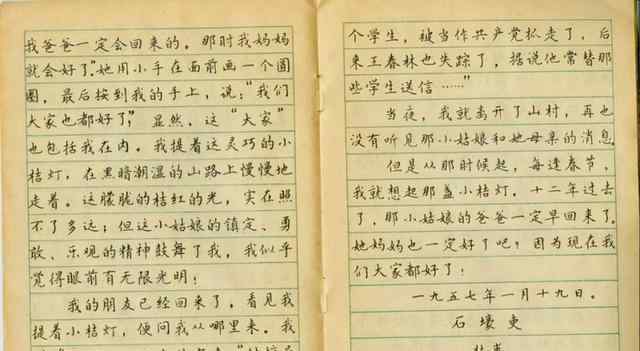 我爸爸一定会回来的。那时我妈妈
就会好了”她用小手在面前画一个圆
圈,最后按到我的手上,说:“我们
大家也都好了”显然,这“大家”
也包括我在内。我提着这灵巧的小
桔灯,在黑暗潮湿的山路上慢慢地
走着。这朦胧的桔红的光,实在照
不了多远;但这小姑娘的镇定、勇
敢、乐观的精神鼓舞了我,我似乎
觉得眼前有无限光明!
我的朋友已经回来了,看见我
提着小桔灯,便问我从哪里来。我
个学生,被当作共产党抓走了,后
来王春林也失踪了,据说他常替那
些学生送信……”
当夜,我就离开了山村,再也
没有听见那小姑娘和她母亲的消息
但是从那时候起,每逢春节,
我就想起那盏小桔灯。十二年过去
了,那小姑娘的爸爸一定早回来了。
她妈妈也一定好了吧?因为现在我
们大家都好了!
一九五七年一月十九日。
石壕吏